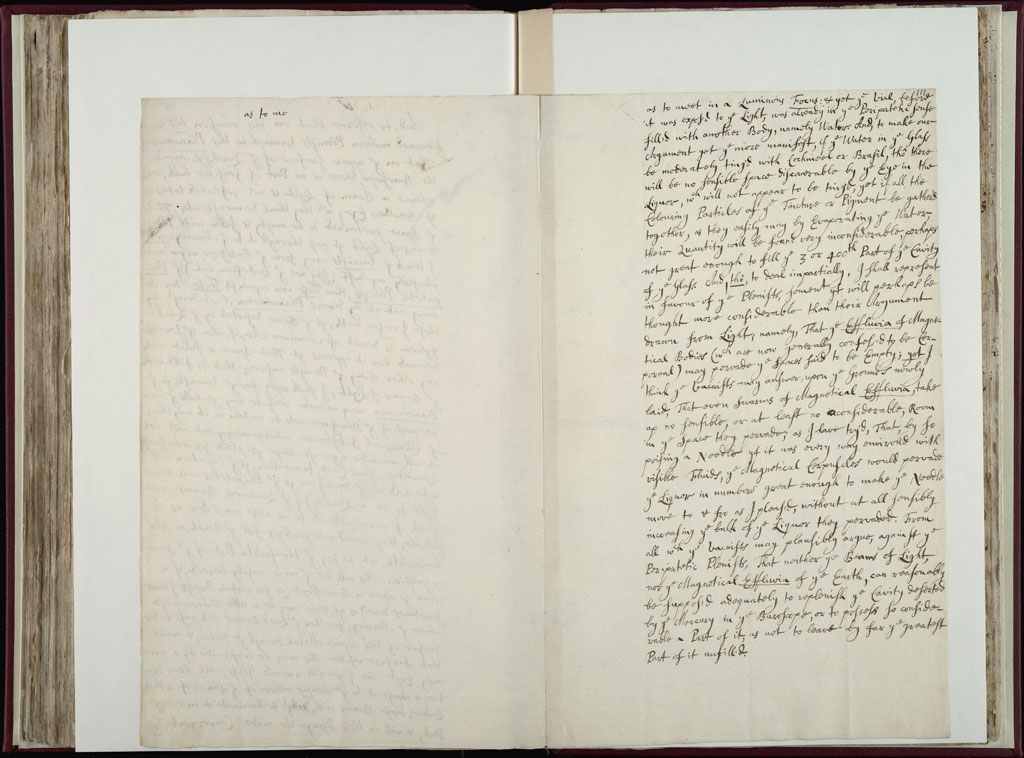 as to me
as to meet in a Luminous Focus: & yet ye bul, before
it was expos'd to ye Light, was already in ye Peripatetic sense
fill'd with another Body, namely Water. And, to make our
Argument yet ye more manifest, if ye Water in ye Glass
be moderately ting'd with Cochineel or Brasil, tho there
will be no sensible space discoverable by ye Eye in the
Liquor, wch will not appear to be ting'd, yet if all the
Colouring Particles of ye Tincture or Pigment be gather'd
together, as they easily may by Evaporating ye Water,
their Quantity will be found very inconsiderable, perhaps
not great enough to fill ye 3 or 400th Part of ye Cavity
of ye Glass. And, tho, to deal impartially, I shall represent
in favour of ye Plenists, somewt yt will perhaps be
thought more considerable than their Argument
drawn from Light, namely, That ye Effluvia of Magne-
tical Bodies (wch are now generally confess'd to be Cor-
poreal) may pervade ye Spaces said to be Empty; yet I
think ye Vacuists may answer, upon ye Grounds newly
laid, That even Swarms of Magnetical Effluvia, take
up no sensible, or at least no considerable, Room
in ye Space they pervade; as I have try'd, That, by so
poising a Needle yt it was every way environ'd with
visible Fluids, ye Magnetical Corpuscles would pervade
ye Liquor in numbers great enough to make ye Needle
move to & fro as I pleas'd, without at all sensibly
increasing ye bulk of ye Liquor they pervaded. From
all wch ye Vacuists may plausibly argue, against ye
Peripatetic Plenists, That neither ye Beams of Light
nor ye Magnetical Effluvia of ye Earth, can reasonably
be suppos'd adequately to replenish ye Cavity deserted
by ye Mercury in ye Baroscope, or to possess so consider-
rable a Part of it, as not to leave by far ye greatest
Part of it unfill'd.